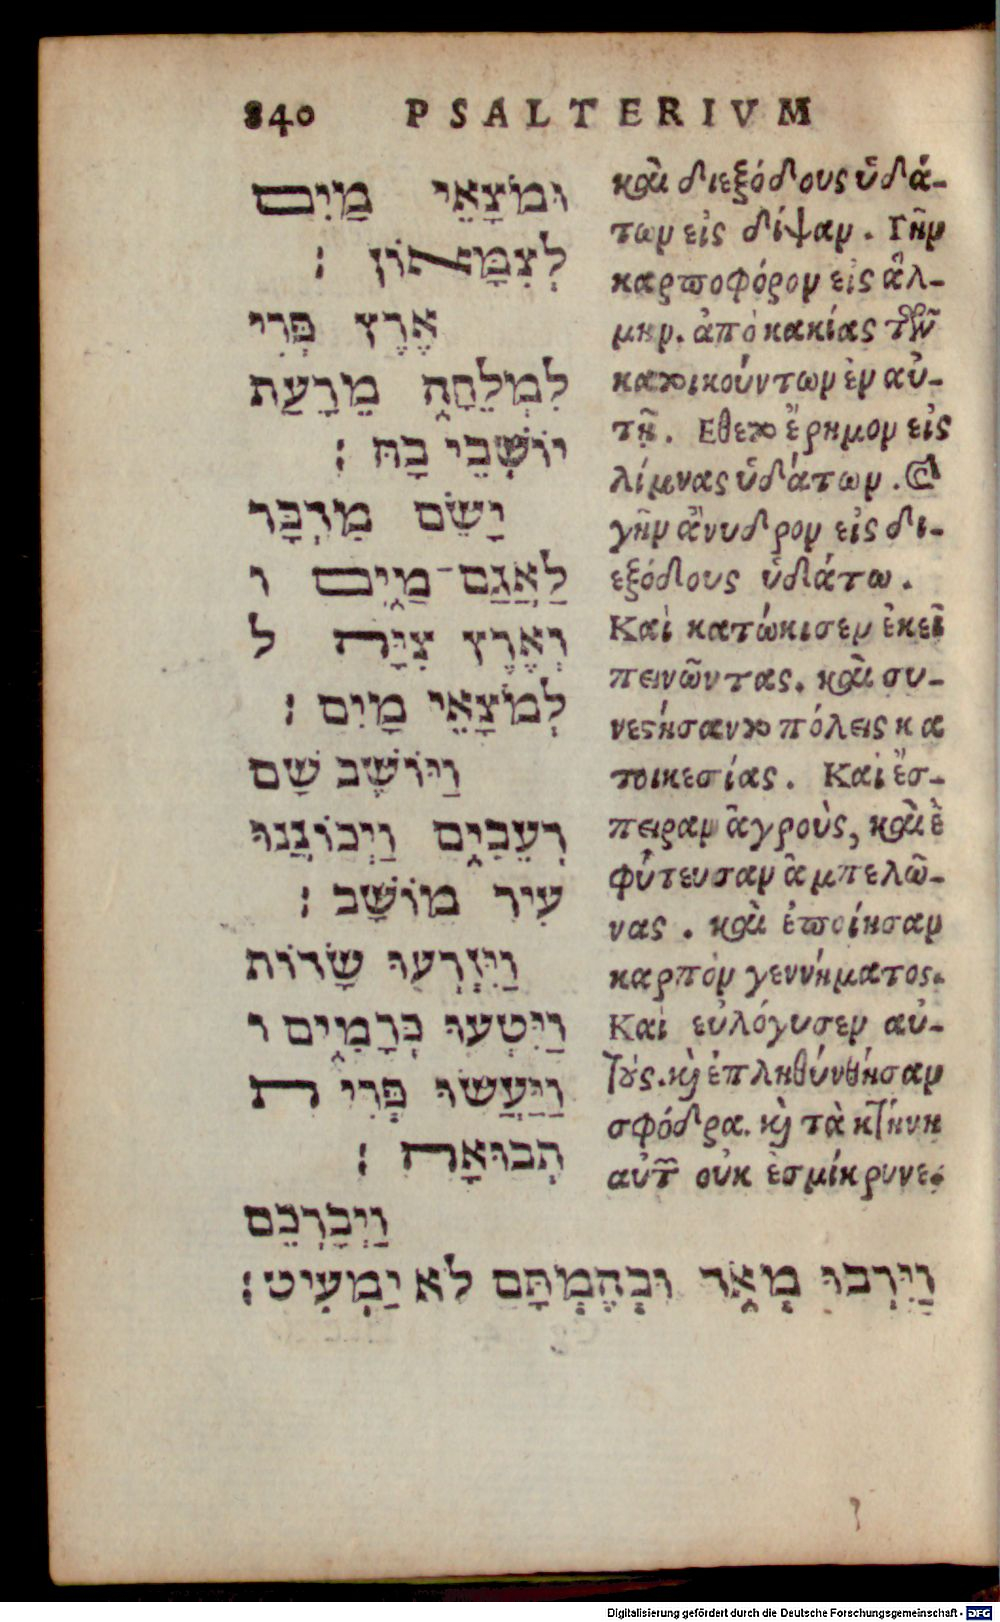 840 PSALTERIVM
וּמֹצָאֵי מַיִם
לְצִמָּאוֹן :
אֶרֶץ פְּרִי
לִמְלֵחָה מֵרָעַת
יוֹשְׁבֵי בָהּ :
יָשֵׂם מִדְבָּר
לַאֲגַם־מַיִם ו
וְאֶרֶץ צִיָּה ל
לְמֹצָאֵי מָיִם :
וַיּוֹשֶׁב שָׁם
רְעֵבִים וַיְכוֹנֲנוּ
עִיר מוֹשָׁב :
וַיִּזְרְעוּ שָׂדוֹת
וַיִּטְּעוּ כְּרָמִים ו
וַיַּעֲשׂוּ פְּרִי ת
תְבוּאָה :
וַיְבָרְכֵם
וַיִּרְבּוּ מְאֹד וּבְהֶמְתָּם לֹא יַמְעִיט :
καὶ διεξόδους ὑδά-
των εἰς δίψαν. Γῆν
καρποφόρον εἰς ἅλ-
μην. ἀπὸ κακίας τῶν
κατοικούντων ἐν αὐ-
τῇ. Εθετο ἔρημον εἰς
λίμνας ὑδάτων. καὶ
γῆν ἄνυδρον εἰς δι-
εξόδους ὑδάτω.
Καὶ κατώκισεν ἐκεῖ
πεινῶντας. καὶ συ-
νεστήσαντο πόλεις κα
τοικεσίας. Καὶ ἔσ-
πειραν ἀγροὺς, καὶ ἐ
φύτευσαν ἀμπελῶ-
νας. καὶ ἐποίησαν
καρπὸν γεννήματος.
Καὶ εὐλόγυσεν αὐ-
τούς. καὶ ἐπληθύνθησαν
σφόδρα. καὶ τὰ κτήνη
αὐτῶν οὐκ ἐσμίκρυνε.
Digitalisierung gefördert durch die Deutsche Forschungsgemeinschaft - DFG